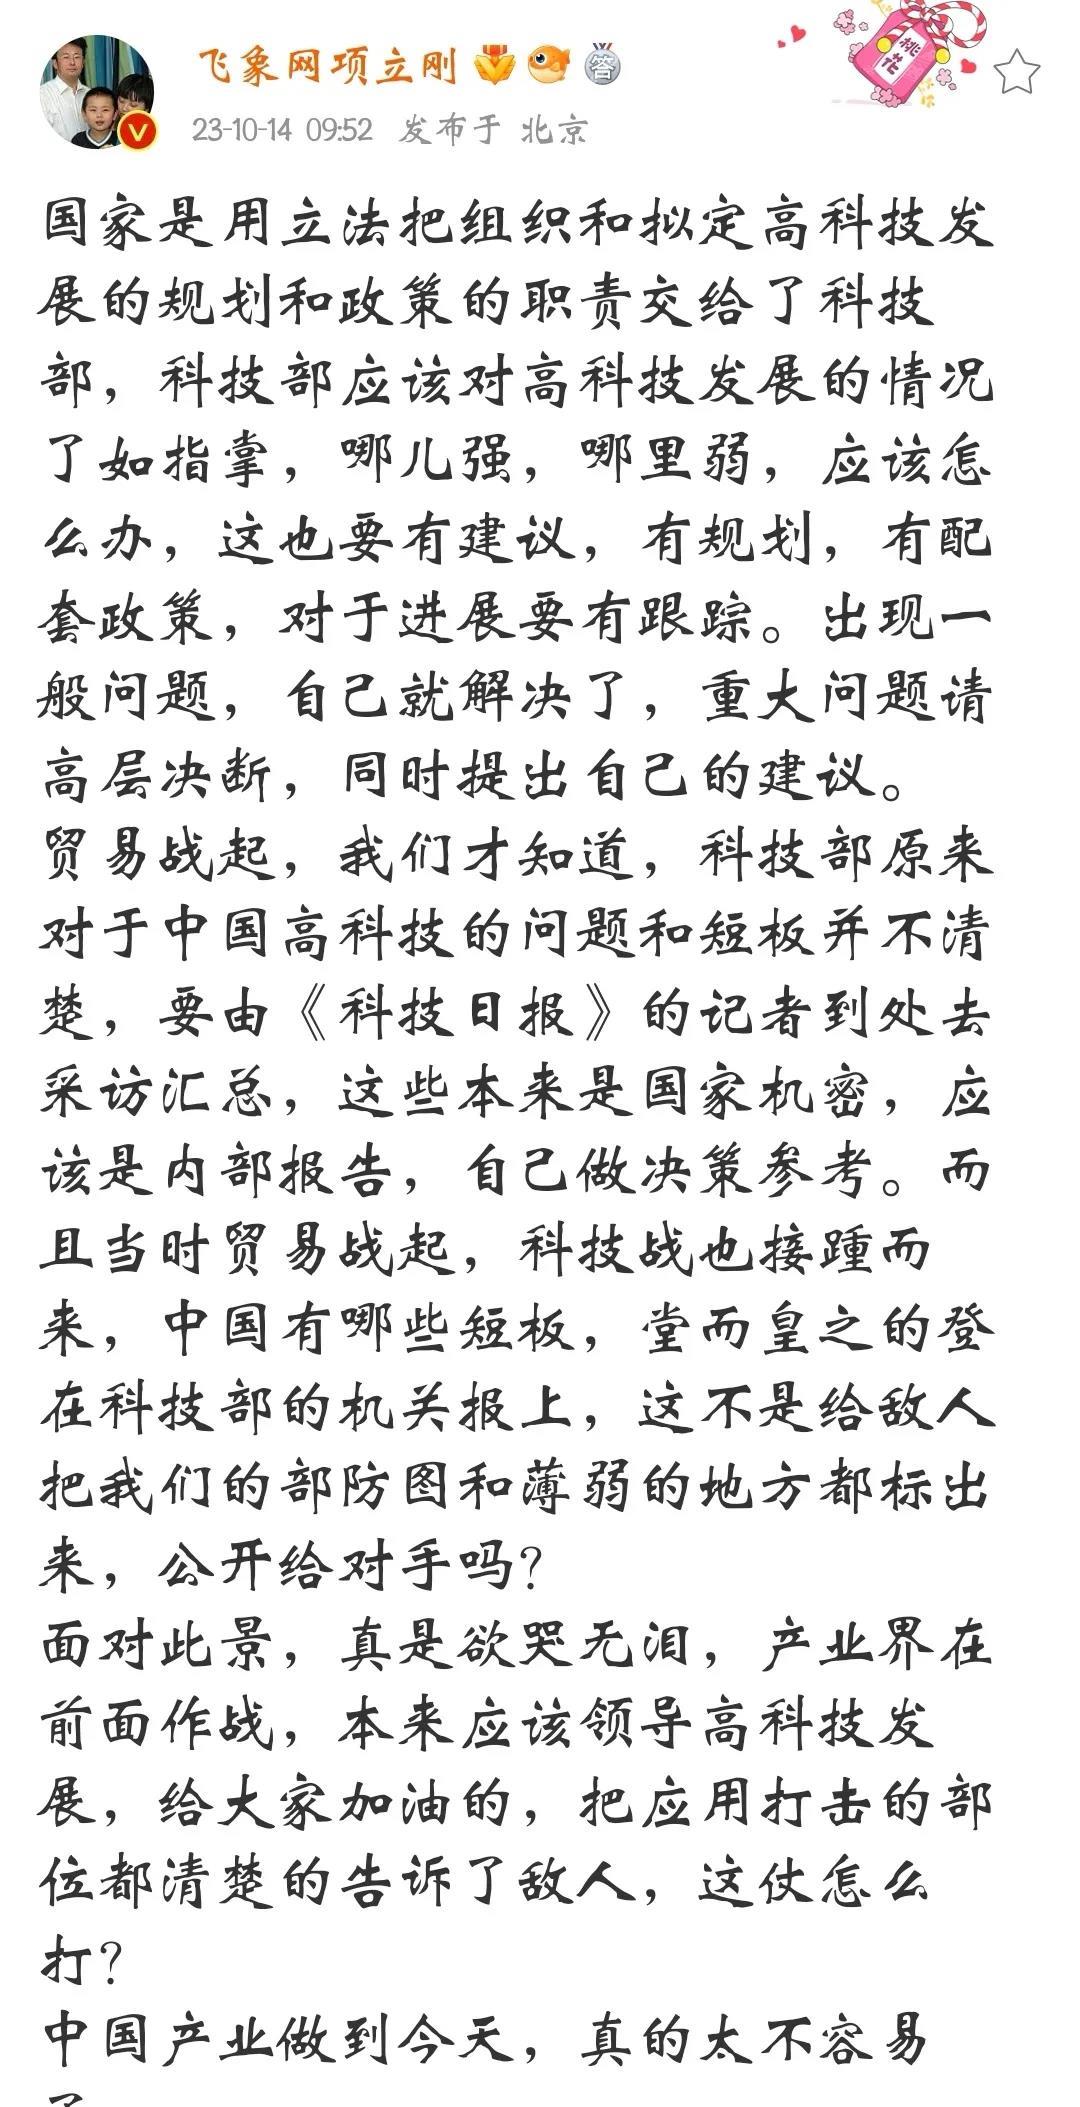 飞象网项立刚 答
桃花
23-10-14 09:52 发布于 北京
国家是用立法把组织和拟定高科技发
展的规划和政策的职责交给了科技
部，科技部应该对高科技发展的情况
了如指掌，哪儿强，哪里弱，应该怎
么办，这也要有建议，有规划，有配
套政策，对于进展要有跟踪。出现一
般问题，自己就解决了，重大问题请
高层决断，同时提出自己的建议。
贸易战起，我们才知道，科技部原来
对于中国高科技的问题和短板并不清
楚，要由《科技日报》的记者到处去
采访汇总，这些本来是国家机密，应
该是内部报告，自己做决策参考。而
且当时贸易战起，科技战也接踵而
来，中国有哪些短板，堂而皇之的登
在科技部的机关报上，这不是给敌人
把我们的部防图和薄弱的地方都标出
来，公开给对手吗？
面对此景，真是欲哭无泪，产业界在
前面作战，本来应该领导高科技发
展，给大家加油的，把应用打击的部
位都清楚的告诉了敌人，这仗怎么
打？
中国产业做到今天，真的太不容易